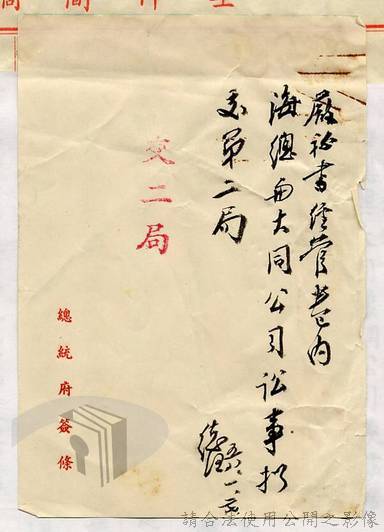 嚴秘書經管卷內
海總與大同公司訟事擬
交第二局
交二局
總統府簽條
請合法使用公開之影像